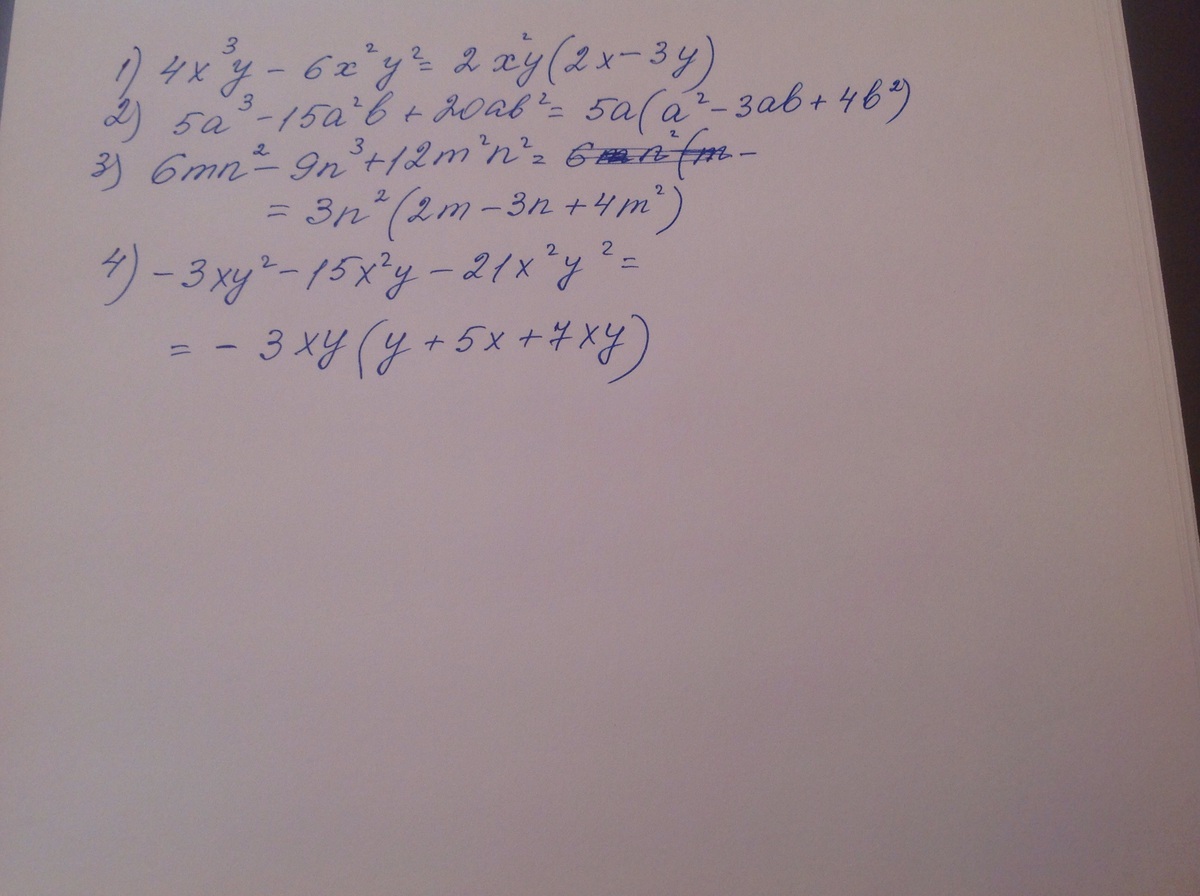 1) 4x³y - 6x²y² = 2x²y(2x - 3y)
2) 5a³ - 15a²b + 20ab² = 5a(a² - 3ab + 4b²)
3) 6mn² - 9n³ + 12m²n² = 6mn²(m -
= 3n²(2m - 3n + 4m²)
4) - 3xy² - 15x²y - 21x²y² =
= - 3xy(y + 5x + 7xy)